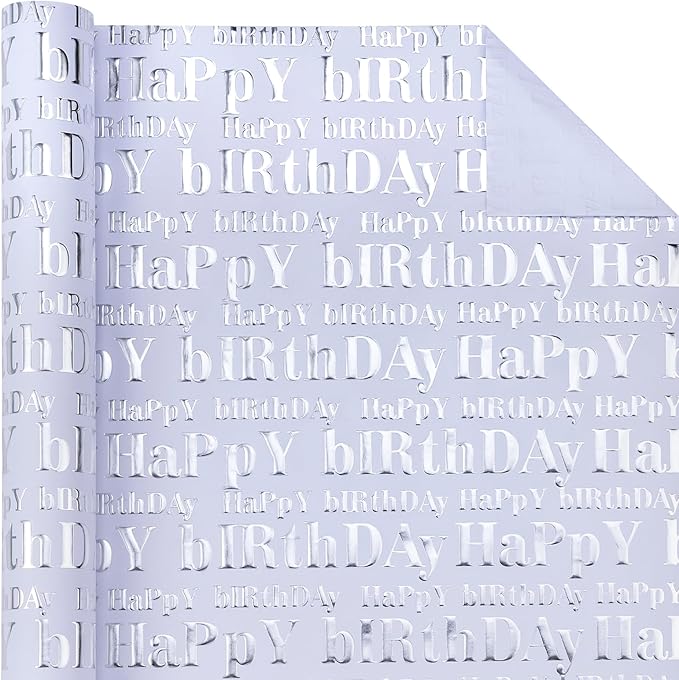 HaPpY bIRthDAy HaPpY bIRthDAy
HaPpY bIRthD
bIRthDAy HaPpY bIRthDAy
HaPpY bIRthDAy Ha
HaPpY bIRthDAy HaPpY bIRthDAy
HaPpY bIRthDAy HaP
bIRthDAy HaPpY bIRthDAy HaPpY bIRthDAy
bIRthDAy HaPpY
HaPpY bIRthDAy HaPpY bIRthDAy HaPpY
HaPpY bIRthDAy HaP
bIRthDAy HaPpY bIRthDAy HaPpY bIRthDAy
bIRthDAy HaPpY
HaPpY bIRthDAy HaPpY bIRthDAy HaPpY
HaPpY bIRthDAy HaP